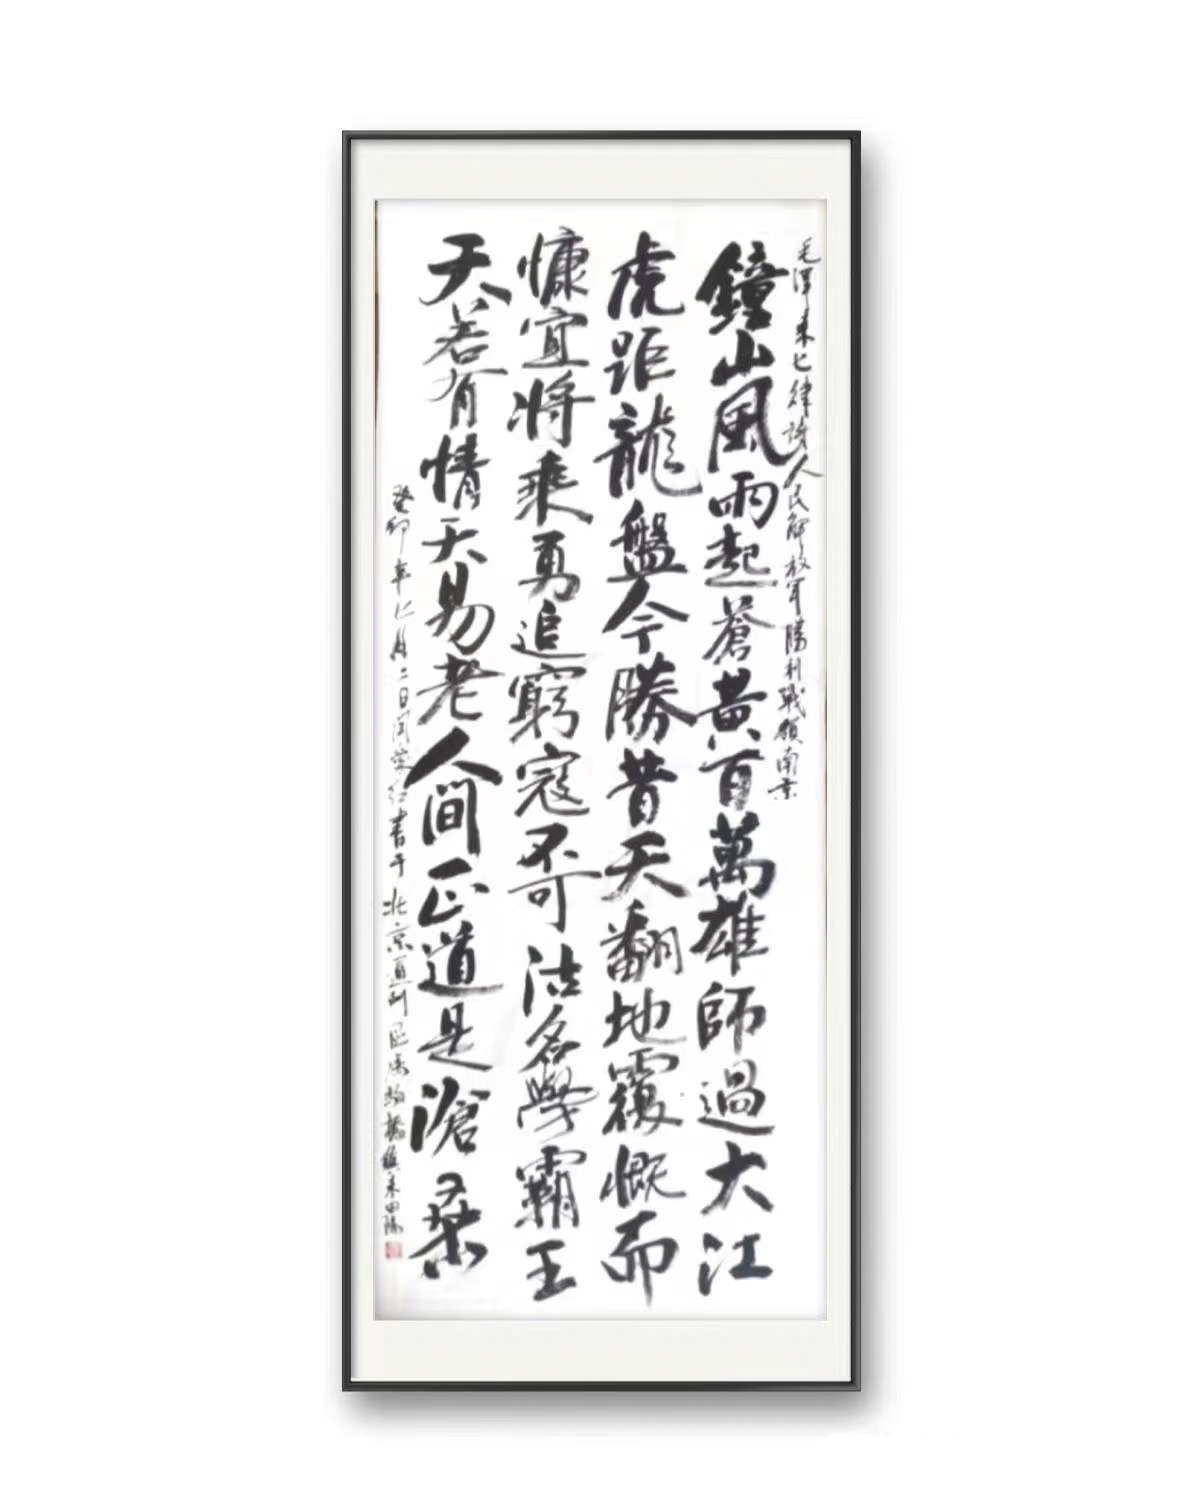 毛澤東七律詩人民解放軍勝利戰領南京
鐘山風雨起蒼黃百萬雄師過大江
虎距龍盤今勝昔天翻地覆慨而
慷宜將乘勇追窮寇不可沽名學霸王
天若有情天易老人間正道是滄桑
癸卯年月二日書于北京通州区馬駒橋鎮東田陽